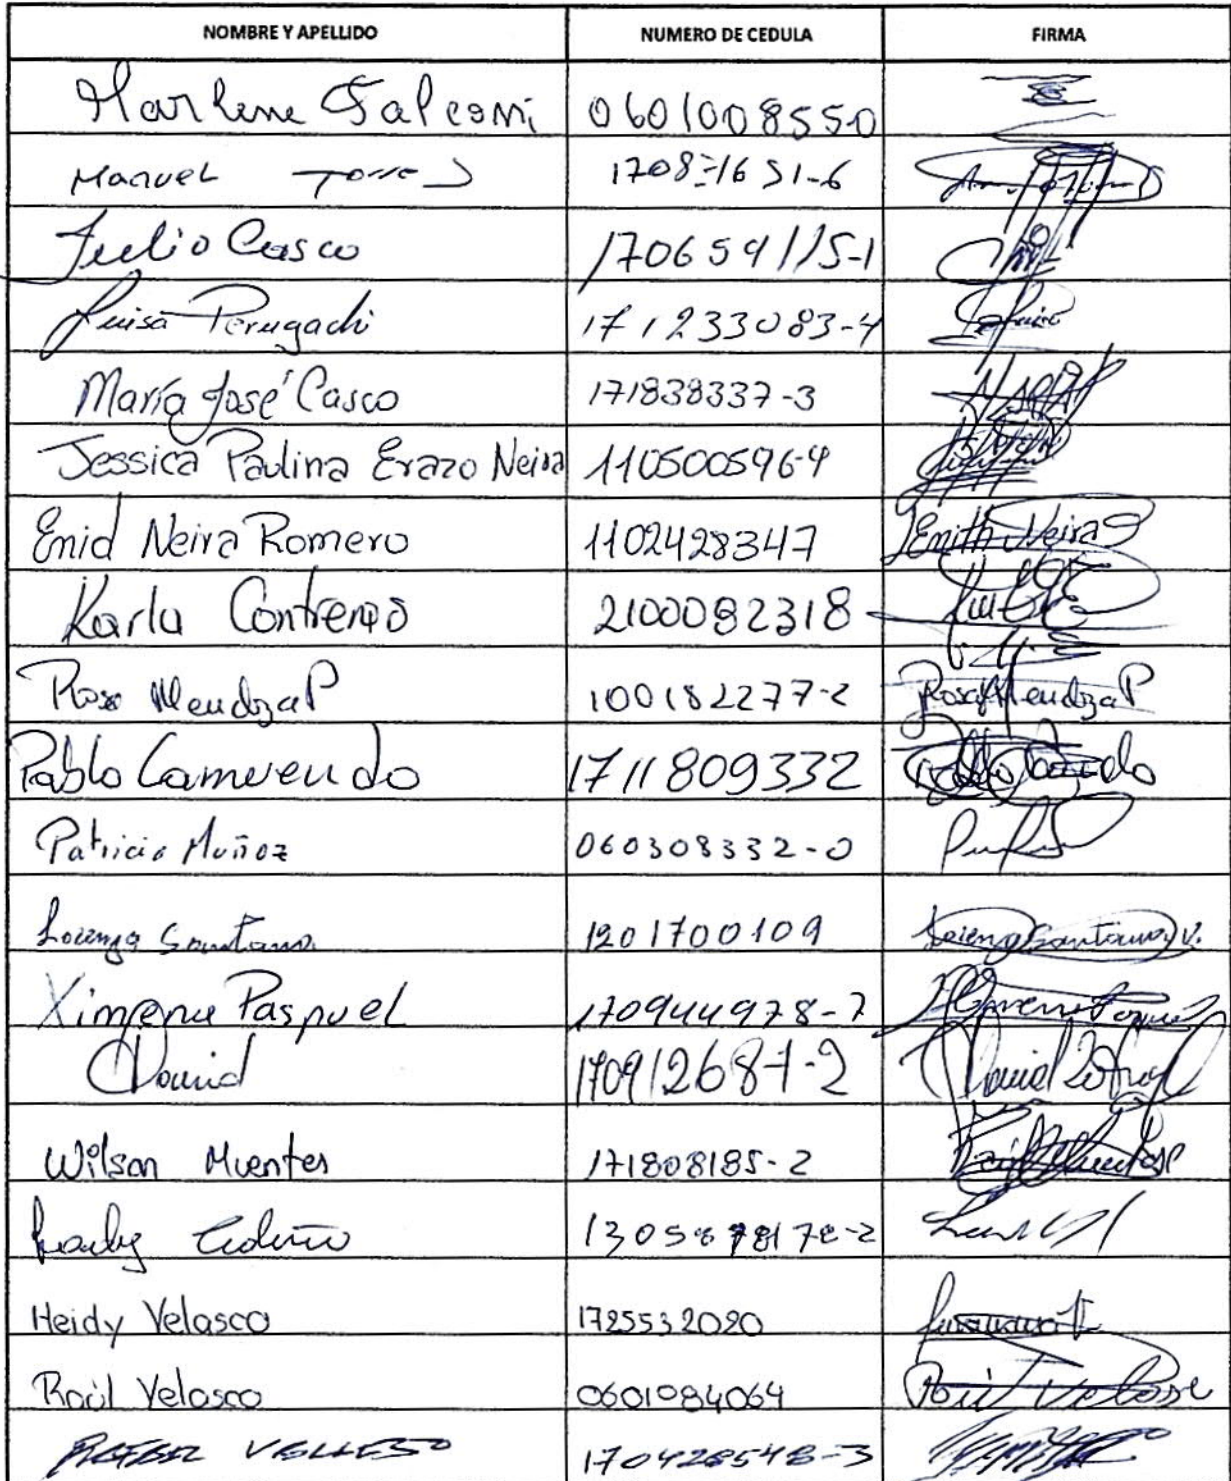 NOMBRE Y APELLIDO NUMERO DE CEDULA FIRMA
Marlene Falconi 0601008550
Manuel Torres 170871651-6
Julio Casco 170659115-1
Luisa Perugachi 171233083-4
María José Casco 171838337-3
Jessica Paulina Erazo Neira 110500596-4
Enid Neira Romero 1102428347 Zenith Neira
Karla Contreras 2100082318
Rosa Mendoza P 100182277-2 Rosa Mendoza P
Pablo Camuendo 1711809332
Patricio Muñoz 060308332-0
Lorenza Santana 1201700109 Lorenza Santana V.
Ximena Paspuel 170944978-7
David 170912687-2 David
Wilson Muentes 171808185-2
Cedeño
Heidy Velasco 1725532020
Raúl Velasco 0601084064 Raúl Velasco
170428548-3